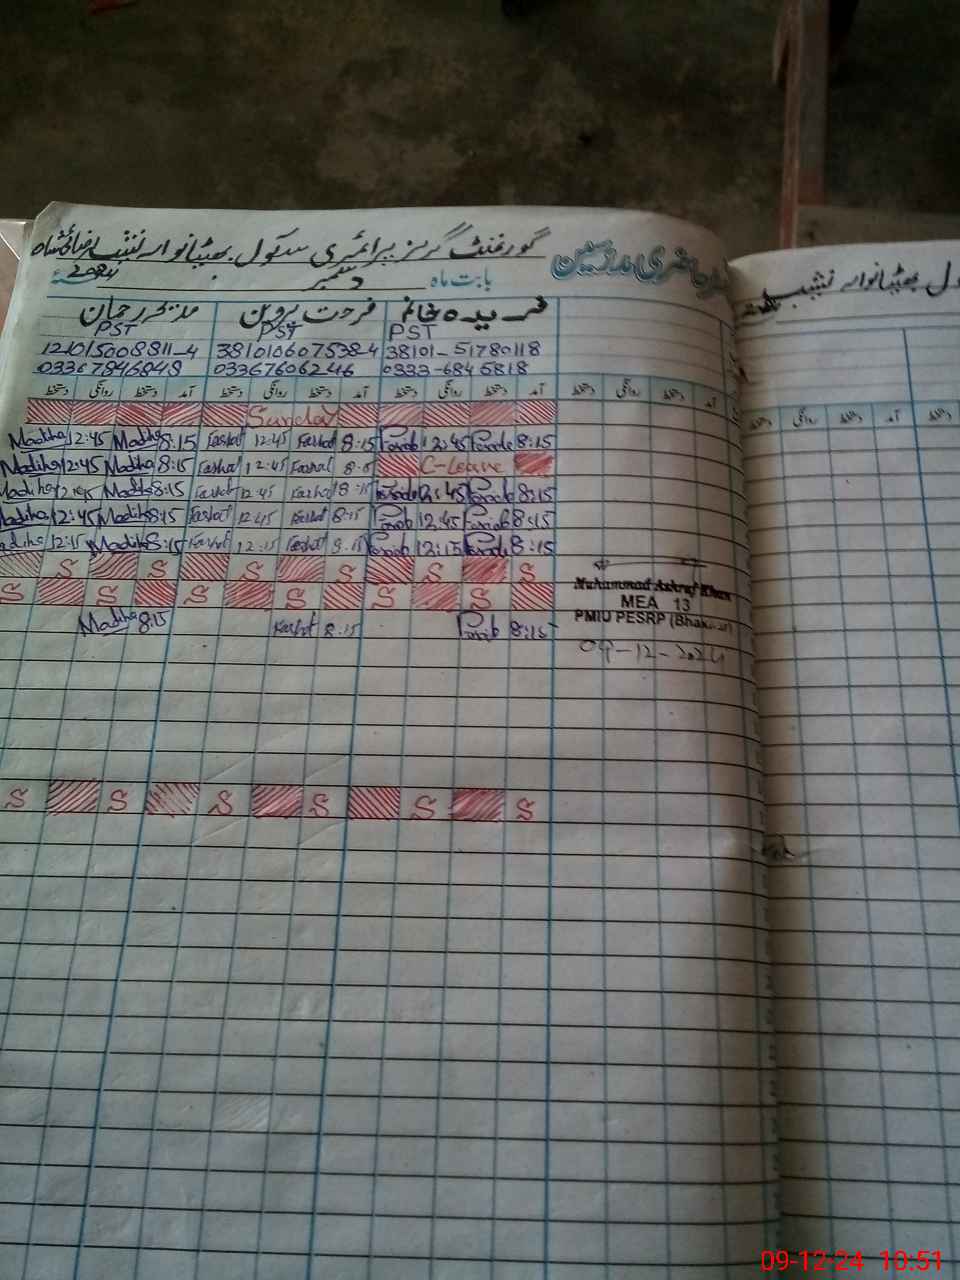 گورنمنٹ گرلز پرائمری سکول بھٹیانوالہ نشیب
حاضری مدرسین
بابت ماہ دسمبر 2024ء
فریدہ خانم فرحت پروین مدیحہ رحمان
PST PST PST
121015008811-4 3810106075384 38101-51780118
03367846948 03367606246 0333-6845818
دستخط روانگی دستخط آمد دستخط روانگی دستخط آمد دستخط روانگی دستخط آمد دستخط روانگی دستخط آمد
Sunday
Madiha 12:45 Madiha 8:15 Farhat 12:45 Farhat 8:15 Farida 12:45 Farida 8:15
Madiha 12:45 Madiha 8:15 Farhat 12:45 Farhat 8:15 C-Leave
Madiha 12:45 Madiha 8:15 Farhat 12:45 Farhat 8:15 Farida 12:45 Farida 8:15
Madiha 12:45 Madiha 8:15 Farhat 12:45 Farhat 8:15 Farida 12:45 Farida 8:15
Madiha 12:15 Madiha 8:15 Farhat 12:15 Farhat 8:15 Farida 12:15 Farida 8:15
S S S S S S
S S S S S
Madiha 8:15 Farhat 8:15 Farida 8:15
Muhammad Ashraf Khan
MEA 13
PMIU PESRP (Bhakkar)
09-12-2024
S S S S S S
بھٹیانوالہ نشیب
آمد دستخط روانگی دستخط
09-12-24 10:51